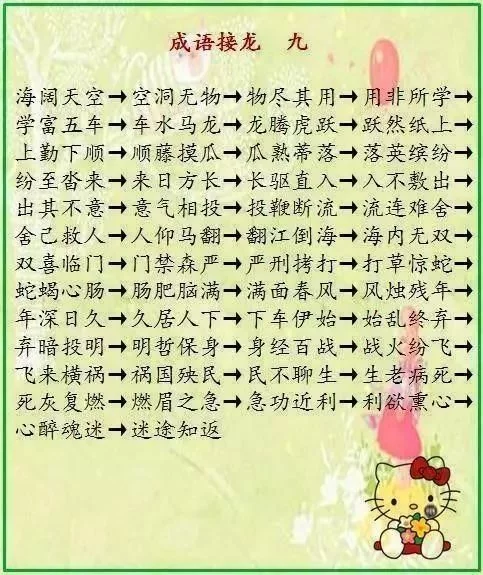 成语接龙 九
海阔天空→空洞无物→物尽其用→用非所学→
学富五车→车水马龙→龙腾虎跃→跃然纸上→
上勤下顺→顺藤摸瓜→瓜熟蒂落→落英缤纷→
纷至沓来→来日方长→长驱直入→入不敷出→
出其不意→意气相投→投鞭断流→流连难舍→
舍己救人→人仰马翻→翻江倒海→海内无双→
双喜临门→门禁森严→严刑拷打→打草惊蛇→
蛇蝎心肠→肠肥脑满→满面春风→风烛残年→
年深日久→久居人下→下车伊始→始乱终弃→
弃暗投明→明哲保身→身经百战→战火纷飞→
飞来横祸→祸国殃民→民不聊生→生老病死→
死灰复燃→燃眉之急→急功近利→利欲熏心→
心醉魂迷→迷途知返